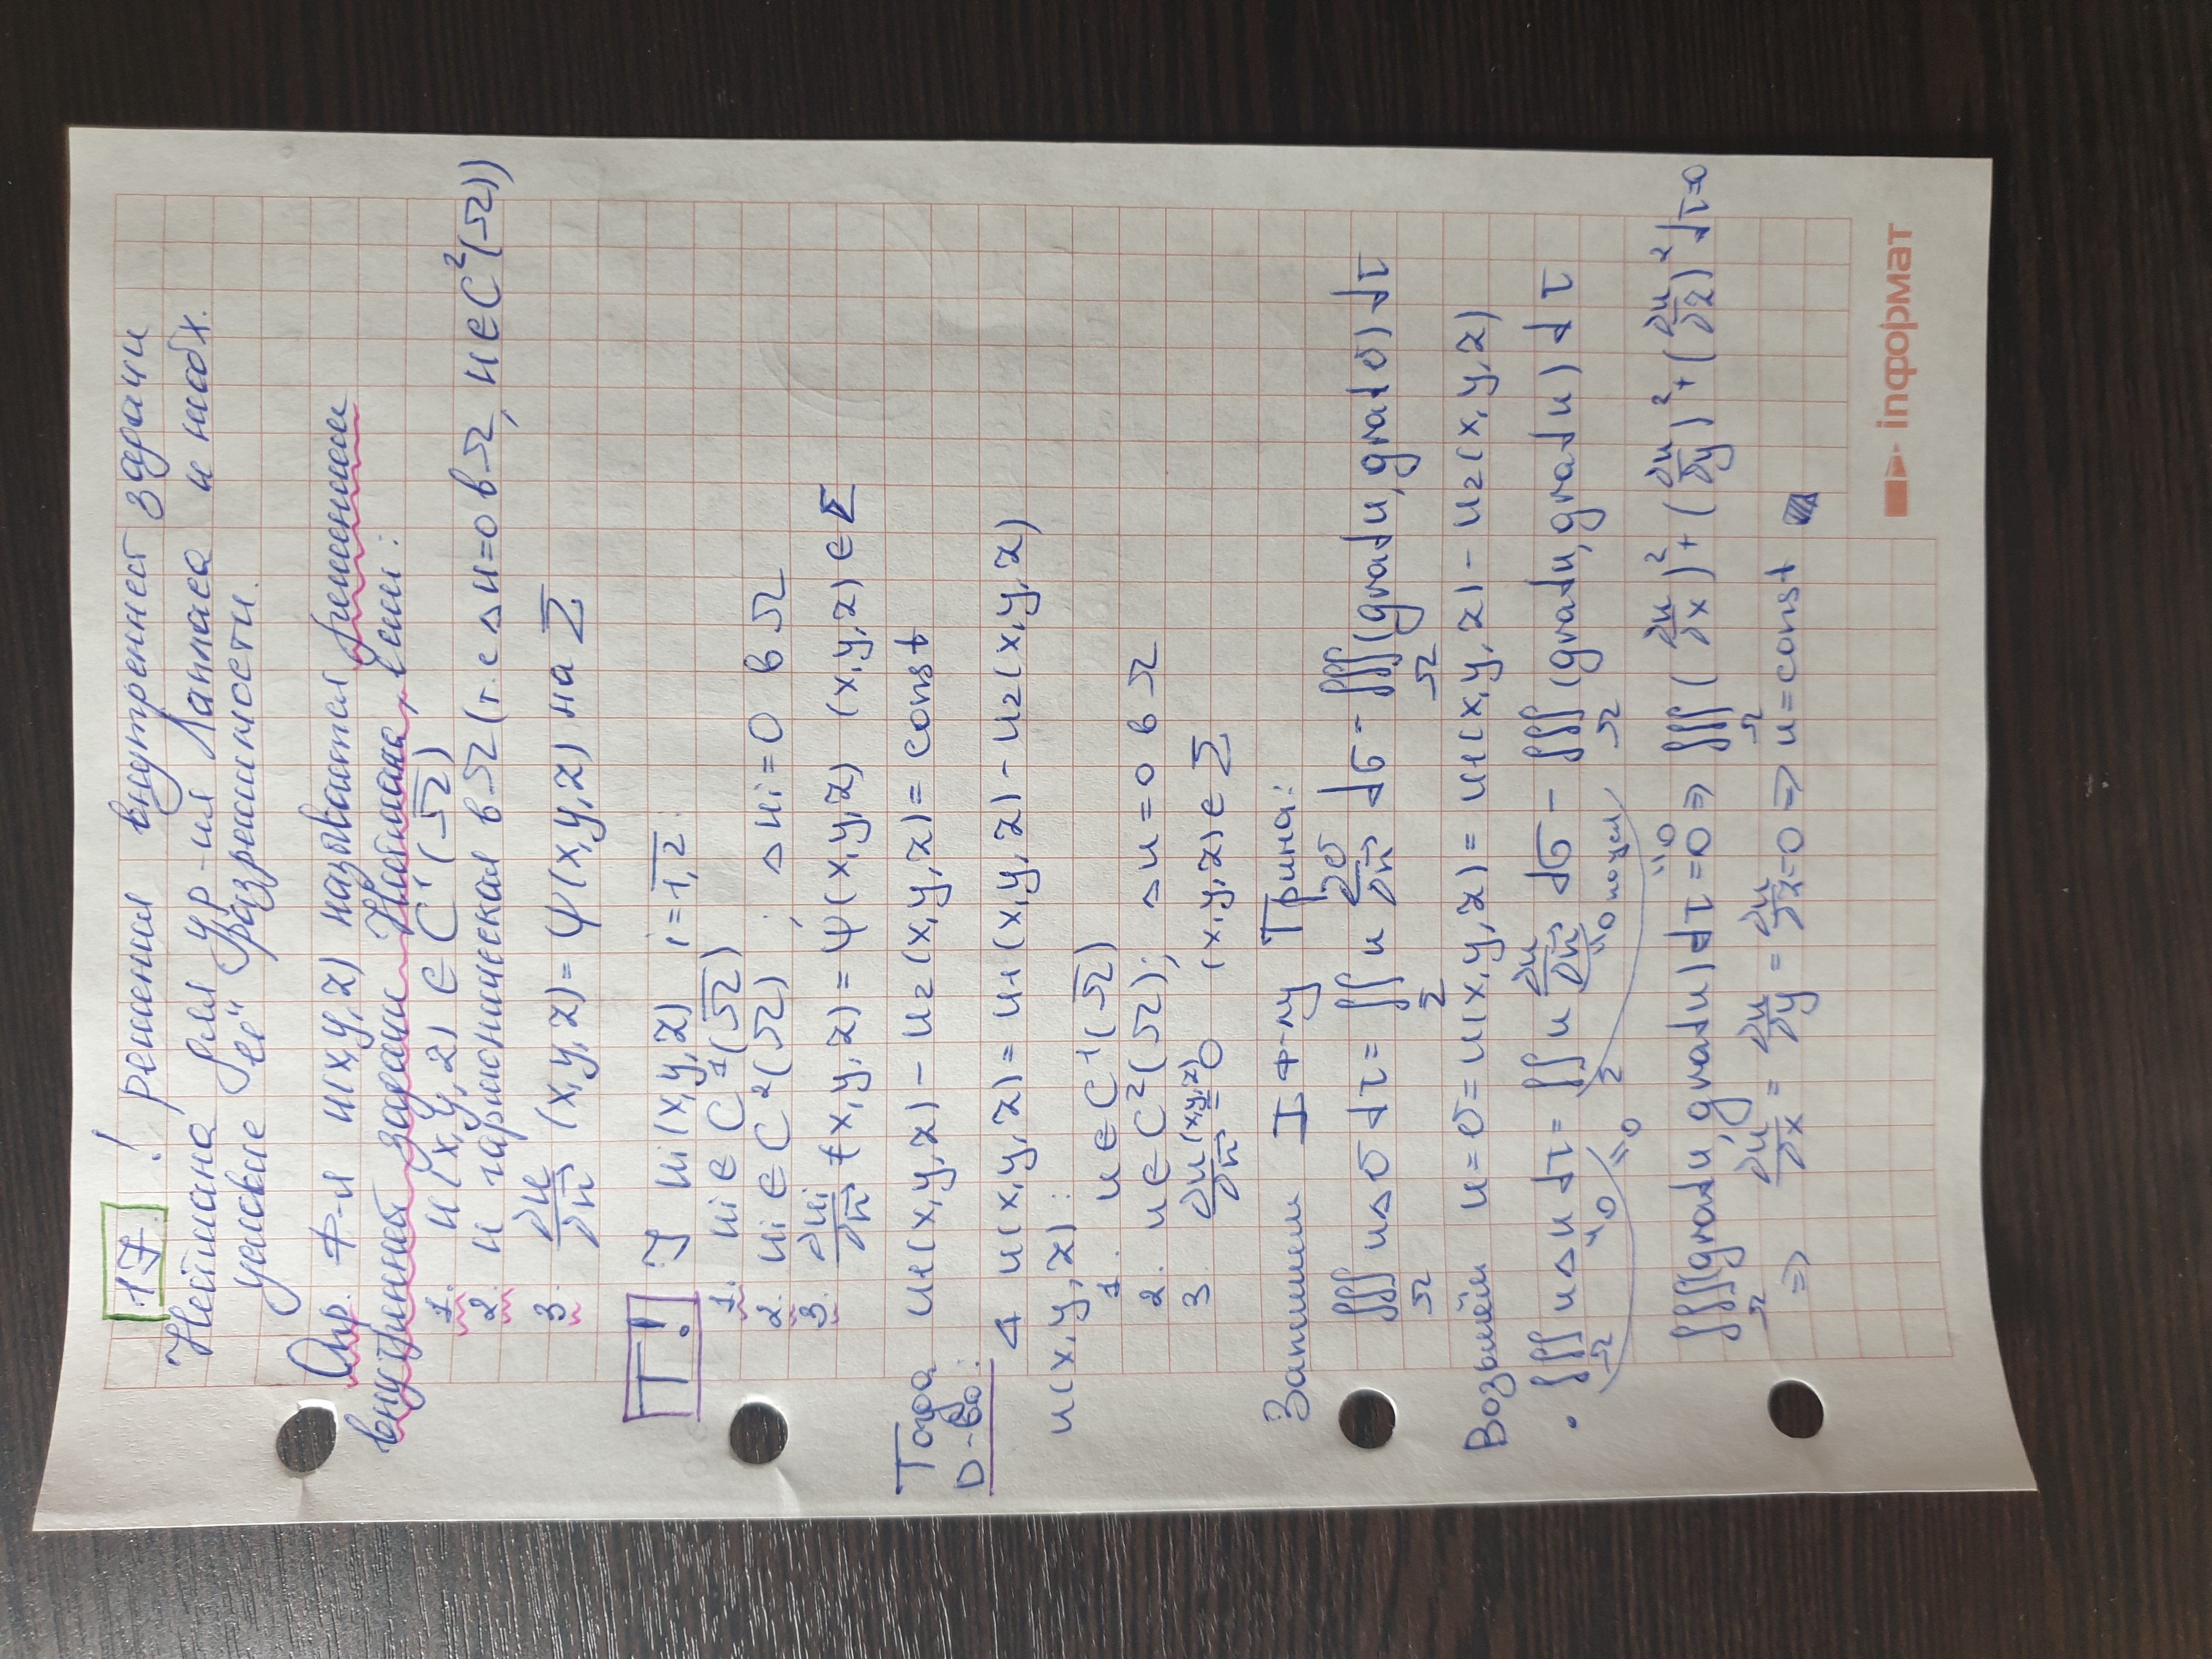 17. ! решения внутренней задачи
Неймана для ур-ия Лапласа и необх.
условие её разрешимости.
Опр. Ф-я u(x,y,z) называется решением
внутренней задачи Неймана, если:
1. u(x,y,z) ∈ C¹(Ω̅)
2. u гармоническая в Ω (т.е Δu=0 в Ω, u∈C²(Ω))
3. ∂u/∂n⃗ (x,y,z) = ψ(x,y,z) на Σ
T! ] uᵢ(x,y,z) i=1,2:
1. uᵢ ∈ C¹(Ω̅)
2. uᵢ ∈ C²(Ω) ; Δuᵢ=0 в Ω
3. ∂uᵢ/∂n⃗ (x,y,z) = ψ(x,y,z) (x,y,z) ∈ Σ
Тогда u₁(x,y,z) - u₂(x,y,z) = const
D-во:
Δ u(x,y,z) = u₁(x,y,z) - u₂(x,y,z)
u(x,y,z):
1. u∈C¹(Ω̅)
2. u∈C²(Ω); Δu=0 в Ω
3. ∂u(x,y,z)/∂n⃗ = 0 (x,y,z)∈Σ
Запишем I ф-лу Грина:
∭_Ω uΔυ dτ = ∬_Σ u ∂υ/∂n⃗ dσ - ∭_Ω (grad u, grad υ) dτ
Возьмём u=υ= u(x,y,z) = u₁(x,y,z) - u₂(x,y,z)
• ∭_Ω uΔu dτ = ∬_Σ u ∂u/∂n⃗ dσ - ∭_Ω (grad u, grad u) dτ
"0 =0 "0 по усл "0
∭_Ω (grad u, grad u) dτ = 0 ⇒ ∭_Ω (∂u/∂x)² + (∂u/∂y)² + (∂u/∂z)² dτ=0
⇒ ∂u/∂x = ∂u/∂y = ∂u/∂z = 0 ⇒ u = const
inформат